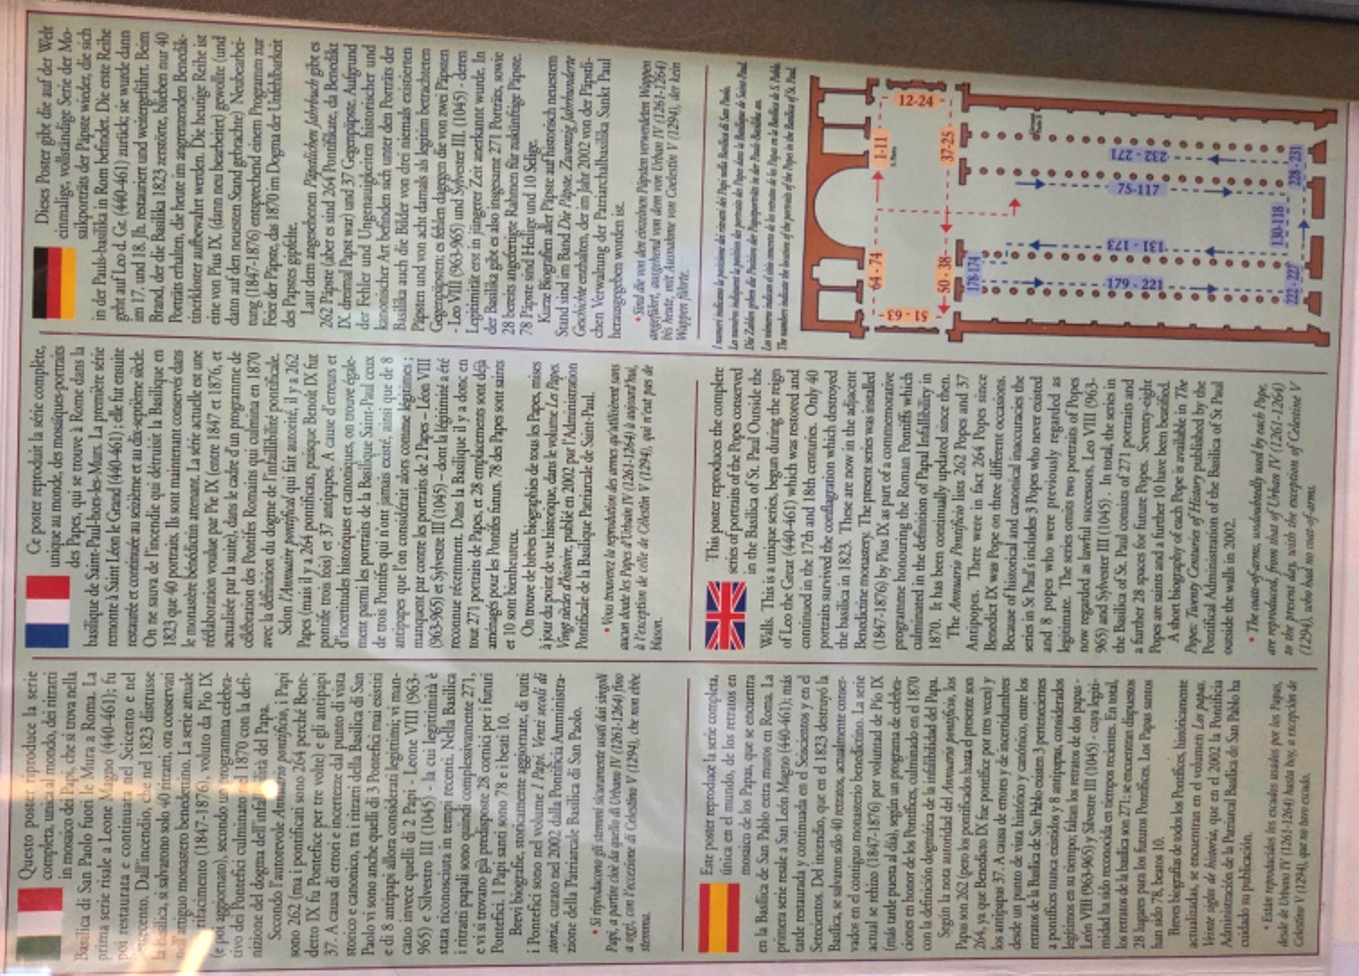 Questo poster riproduce la serie
completa, unica al mondo, dei ritratti
in mosaico dei Papi, che si trova nella
Basilica di San Paolo fuori le Mura a Roma. La
prima serie risale a Leone Magno (440-461); fu
poi restaurata e continuata nel Seicento e nel
Settecento. Dall'incendio, che nel 1823 distrusse
la basilica, si salvarono solo 40 ritratti, ora conservati
nell'antico monastero benedettino. La serie attuale
rifacimento (1847-1876), voluto da Pio IX
(e poi aggiornato), secondo un programma celebra-
tivo dei Pontefici culminato nel 1870 con la defi-
nizione del dogma dell'infallibilità del Papa.
Secondo l'autorevole Annuario pontificio, i Papi
sono 262 (ma i pontificati sono 264 perché Bene-
detto IX fu Pontefice per tre volte) e gli antipapi
37. A causa di errori e incertezze dal punto di vista
storico e canonico, tra i ritratti della Basilica di San
Paolo vi sono anche quelli di 3 Pontefici mai esistiti
e di 8 antipapi allora considerati legittimi; vi man-
cano invece quelli di 2 Papi - Leone VIII (963-
965) e Silvestro III (1045) - la cui legittimità è
stata riconosciuta in tempi recenti. Nella Basilica
i ritratti papali sono quindi complessivamente 271,
e vi si trovano già predisposte 28 cornici per i futuri
Pontefici. I Papi santi sono 78 e i beati 10.
Brevi biografie, storicamente aggiornate, di tutti
i Pontefici sono nel volume I Papi. Venti secoli di
storia, curato nel 2002 dalla Pontificia Amministra-
zione della Patriarcale Basilica di San Paolo.
• Si riproducono gli stemmi sicuramente usati dai singoli
Papi, a partire cioè da quello di Urbano IV (1261-1264) fino
a oggi, con l'eccezione di Celestino V (1294), che non ebbe
stemma.
Este poster reproduce la serie completa,
única en el mundo, de los retratos en
mosaico de los Papas, que se encuentra
en la Basílica de San Pablo extra muros en Roma. La
primera serie resale a San León Magno (440-461); más
tarde restaurada y continuada en el Seiscientos y en el
Setecientos. Del incendio, que en el 1823 destruyó la
Basílica, se salvaron sólo 40 retratos, actualmente conser-
vados en el contiguo monasterio benedictino. La serie
actual se rehizo (1847-1876) por voluntad de Pío IX
(más tarde puesta al día), según un programa de celebra-
ciones en honor de los Pontífices, culminado en el 1870
con la definición dogmática de la infalibilidad del Papa.
Según la nota autoridad del Annuario pontificio, los
Papas son 262 (pero los pontificados hasta el presente son
264, ya que Benedicto IX fue pontífice por tres veces) y
los antipapas 37. A causa de errores y de incertidumbres
desde un punto de vista histórico y canónico, entre los
retratos de la Basílica de San Pablo existen 3 pertenecientes
a pontífices nunca existidos y 8 antipapas, considerados
legítimos en su tiempo; faltan los retratos de dos papas -
León VIII (963-965) y Silvestre III (1045) - cuya legiti-
midad ha sido reconocida en tiempos recientes. En total,
los retratos de la basílica son 271; se encuentran dispuestos
28 lugares para los futuros Pontífices. Los Papas santos
han sido 78, beatos 10.
Breves biografías de todos los Pontífices, históricamente
actualizadas, se encuentran en el volumen Los papas.
Veinte siglos de historia, que en el 2002 la Pontificia
Administración de la Patriarcal Basílica de San Pablo ha
cuidado su publicación.
• Están reproducidos los escudos usados por los Papas,
desde de Urbano IV (1261-1264) hasta hoy, a excepción de
Celestino V (1294), que no tuvo escudo.
Ce poster reproduit la série complète,
unique au monde, des mosaïques-portraits
des Papes, qui se trouve à Rome dans la
basilique de Saint-Paul-hors-les-Murs. La première série
remonte à Saint Léon le Grand (440-461); elle fut ensuite
restaurée et continuée au seizième et au dix-septième siècle.
On ne sauva de l'incendie qui détruisit la Basilique en
1823 que 40 portraits. Ils sont maintenant conservés dans
le monastère bénédictin attenant. La série actuelle est une
réélaboration voulue par Pie IX (entre 1847 et 1876, et
actualisée par la suite), dans le cadre d'un programme de
célébration des Pontifes Romains qui culmina en 1870
avec la définition du dogme de l'infaillibilité pontificale.
Selon l'Annuaire pontifical qui fait autorité, il y a 262
Papes (mais il y a 264 pontificats, puisque Benoît IX fut
pontife trois fois) et 37 antipapes. A cause d'erreurs et
d'incertitudes historiques et canoniques, on trouve égale-
ment parmi les portraits de la Basilique Saint-Paul ceux
de trois Pontifes qui n'ont jamais existé, ainsi que de 8
antipapes que l'on considérait alors comme légitimes ;
manquent par contre les portraits de 2 Papes – Léon VIII
(963-965) et Sylvestre III (1045) – dont la légitimité a été
reconnue récemment. Dans la Basilique il y a donc en
tout 271 portraits de Papes, et 28 emplacements sont déjà
aménagés pour les Pontifes futurs. 78 des Papes sont saints
et 10 sont bienheureux.
On trouve de brèves biographies de tous les Papes, mises
à jour du point de vue historique, dans le volume Les Papes.
Vingt siècles d'histoire, publié en 2002 par l'Administration
Pontificale de la Basilique Patriarcale de Saint-Paul.
• Vous trouverez la reproduction des armes qu'utilisèrent sans
aucun doute les Papes d'Urbain IV (1261-1264) à aujourd'hui,
à l'exception de celle de Célestin V (1294), qui n'eut pas de
blason.
This poster reproduces the complete
series of portraits of the Popes conserved
in the Basilica of St. Paul Outside the
Walls. This is a unique series, begun during the reign
of Leo the Great (440-461) which was restored and
continued in the 17th and 18th centuries. Only 40
portraits survived the conflagration which destroyed
the basilica in 1823. These are now in the adjacent
Benedictine monastery. The present series was installed
(1847-1876) by Pius IX as part of a commemorative
programme honouring the Roman Pontiffs which
culminated in the definition of Papal Infallibility in
1870. It has been continually updated since then.
The Annuario Pontificio lists 262 Popes and 37
Antipopes. There were in fact 264 Popes since
Benedict IX was Pope on three different occasions.
Because of historical and canonical inaccuracies the
series in St Paul's includes 3 Popes who never existed
and 8 popes who were previously regarded as
legitimate. The series omits two portraits of Popes
now regarded as lawful successors, Leo VIII (963-
965) and Sylvester III (1045) . In total, the series in
the Basilica of St. Paul consists of 271 portraits and
a further 28 spaces for future Popes. Seventy-eight
Popes are saints and a further 10 have been beatified.
A short biography of each Pope is available in The
Popes: Twenty Centuries of History published by the
Pontifical Administration of the Basilica of St Paul
outside the walls in 2002.
• The coats-of-arms, undoubtedly used by each Pope,
are reproduced, from that of Urban IV (1261-1264)
to the present day, with the exception of Celestine V
(1294), who had no coat-of-arms.
Dieses Poster gibt die auf der Welt
einmalige, vollständige Serie der Mo-
saikporträts der Päpste wieder, die sich
in der Pauls-basilika in Rom befindet. Die erste Reihe
geht auf Leo d. Gr. (440-461) zurück; sie wurde dann
im 17. und 18. Jh. restauriert und weitergeführt. Beim
Brand, der die Basilika 1823 zerstörte, blieben nur 40
Porträts erhalten, die heute im angrenzenden Benedik-
tinerkloster aufbewahrt werden. Die heutige Reihe ist
eine von Pius IX. (dann neu bearbeitet) gewollte (und
dann auf den neuesten Stand gebrachte) Neubearbei-
tung (1847-1876) entsprechend einem Programm zur
Feier der Päpste, das 1870 im Dogma der Unfehlbarkeit
des Papstes gipfelte.
Laut dem angesehenen Päpstlichen Jahrbuch gibt es
262 Päpste (aber es sind 264 Pontifikate, da Benedikt
IX. dreimal Papst war) und 37 Gegenpäpste. Aufgrund
der Fehler und Ungenauigkeiten historischer und
kanonischer Art befinden sich unter den Porträts der
Basilika auch die Bilder von drei niemals existierten
Päpsten und von acht damals als legitim betrachteten
Gegenpäpsten; es fehlen dagegen die von zwei Päpsten
- Leo VIII (963-965) und Sylvester III. (1045) - deren
Legitimität erst in jüngerer Zeit anerkannt wurde. In
der Basilika gibt es also insgesamt 271 Porträts, sowie
28 bereits angefertigte Rahmen für zukünftige Päpste.
78 Päpste sind Heilige und 10 Selige.
Kurze Biografien aller Päpste auf historisch neuestem
Stand sind im Band Die Päpste. Zwanzig Jahrhunderte
Geschichte enthalten, der im Jahr 2002 von der Päpstli-
chen Verwaltung der Patriarchalbasilika Sankt Paul
herausgegeben worden ist.
• Sind die von den einzelnen Päpsten verwendeten Wappen
angeführt, ausgehend von dem von Urban IV (1261-1264)
bis heute, mit Ausnahme von Coelestin V (1294), der kein
Wappen führte.
I numeri indicano la posizione dei ritratti dei Papi nella Basilica di San Paolo.
Les numéros indiquent la position des portraits des Papes dans la Basilique de Saint-Paul.
Die Zahlen geben die Position der Papstporträts in der Pauls-Basilika an.
Los números indican el sitio concreto de los retratos de los Papas en la Basílica de S. Pablo.
The numbers indicate the location of the portraits of the Popes in the Basilica of St. Paul.
51 - 63
64 - 74
1-11
12-24
50 - 38
37-25
178-174
179 - 221
131 - 173
75-117
232 - 271
222 - 227
130-118
228 - 231